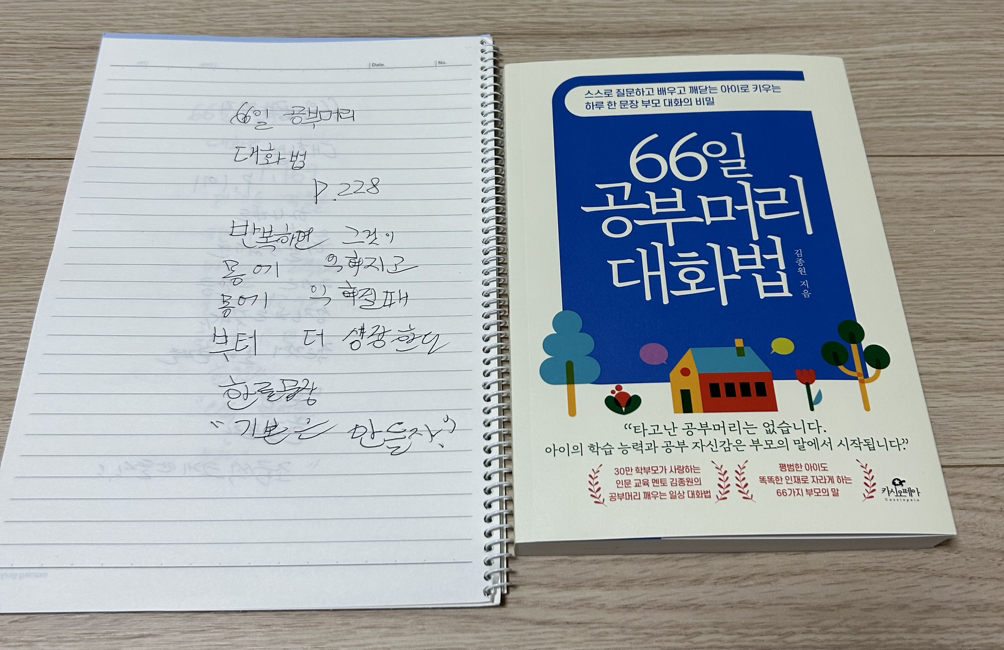 Date.
No.
66일 공부머리
대화법
P.228
반복하면 그것이
몸에 익혀지고
몸에 익혀질때
부터 더 성장한다
한글문장
"기본은 만들자"
스스로 질문하고 배우고 깨닫는 아이로 키우는
하루 한 문장 부모 대화의 비밀
66일
공부머리
대화법
김종원 지음
“타고난 공부머리는 없습니다.
아이의 학습 능력과 공부 자신감은 부모의 말에서 시작됩니다.”
30만 학부모가 사랑하는
인문 교육 멘토 김종원의
공부머리 깨우는 일상 대화법
평범한 아이도
똑똑한 인재로 자라게 하는
66가지 부모의 말
카시오페아
Cassiopeia